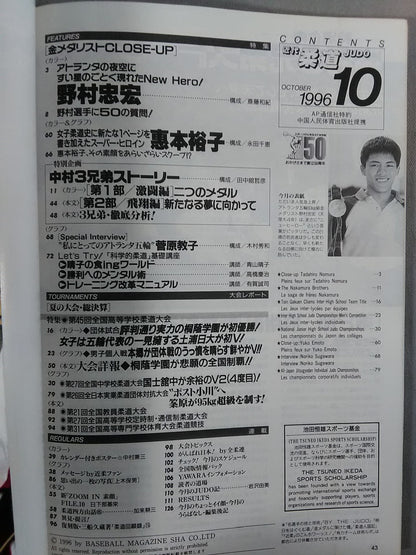 FEATURES
特集
[金メダリストCLOSE-UP]
〈カラー〉
3 アトランタの夜空に
すい星のごとく現れたNew Hero!
野村忠宏
構成/斎藤和紀
8 野村選手に50の質問!
〈カラー&グラフ〉
60 女子柔道史に新たな1ページを
書き加えたスーパー・ヒロイン
恵本裕子
構成/永田千恵
66 恵本裕子、その素顔をあらいざらいスワープ!?
―特別企画
中村3兄弟ストーリー
構成/田中館哲彦
11〈カラー〉[第1部/激闘編]二つのメダル
44〈本文〉[第2部/飛翔編]新たなる夢に向かって
48〈本文〉3兄弟・徹底分析!
〈グラフ〉
68 [Special Interview]
"私にとってのアトランタ五輪" 菅原教子
構成/木村秀和
72 Let's Try!「科学的柔道」基礎講座
▶晴子の食ingワールド
講師/青山晴子
▶勝利へのメンタル術
講師/高橋慶治
▶トレーニング改革マニュアル
講師/有賀誠司
TOURNAMENTS
大会レポート
[夏の大会・総決算]
特集●第45回全国高等学校柔道大会
16〈カラー〉●団体試合 評判通りの実力の桐蔭学園が初優勝!
女子は五輪代表の一見擁する土浦日大が初V!
23〈グラフ〉●男子個人戦 本園が団体戦のうっ憤を晴らす鮮やかV!!
50〈本文〉大会詳報◆桐蔭学園が悲願の全国制覇!!
〈グラフ〉
30 ●第27回全国中学校柔道大会 国士舘中が余裕のV2(4度目)!
79 ●第26回全日本実業柔道団体対抗大会 "ポスト小川"へ
笨原が95kg超級を制す!
〈本文〉
88 ●第21回全国教員柔道大会
90 ●第27回全国高等学校定時制・通信制柔道大会
94 ●第31回全国高等専門学校体育大会柔道競技
REGULARS
連載
〈カラー〉
39 カレンダー付きポスター◎中村兼三
〈グラフ〉
28 メッセージ by 近柔ファン
86 思い出の一枚の写真[上木保男]
〈本文〉
55 新「ZOOM IN 素顔」
FILE.10 日下部基栄
58 柔道四方山話⑩
98 大会トピックス
100 がんばれ日本! by 全柔連
102 チェック!今月のスケジュール
104 全国版情報パック
106 YAWARAインフォメーション
108 読者の道場
110 今月の[JUDO]
111 RESULTS
© 1996 by BASEBALL MAGAZINE SHA CO.,LTD
Reproduction without permission is strictly prohibited.
CONTENTS
近代柔道
JUDO
OCTOBER
1996
10
AP通信社特約
中国人民体育出版社提携
50
今月の表紙
●Close-up:Tadahiro Nomura
Pleins feux sur Tadahiro Nomura
●The Nakamura Brothers
La saga de frères Nakamura
Les jeux inter-lycées par équipes
Les jeux inter-lycées individuel
●National Junior High School Judo Championships
Les championnats du Japon des collèges
●Close-up:Yuko Emoto
Pleins feux sur Yuko Emoto
●Interview:Noriko Sugawara
Interview:Noriko Sugawara
Les championnats corporatifs individuels
池田恒雄スポーツ基金
(THE TSUNEO IKEDA SPORTS SCHOLARSHIP)
THE TSUNEO IKEDA
SPORTS SCHOLARSHIP
has been founded with a view towards
promoting international sports exchange
and financially supporting players, sports
organizations and research of sports science.
43